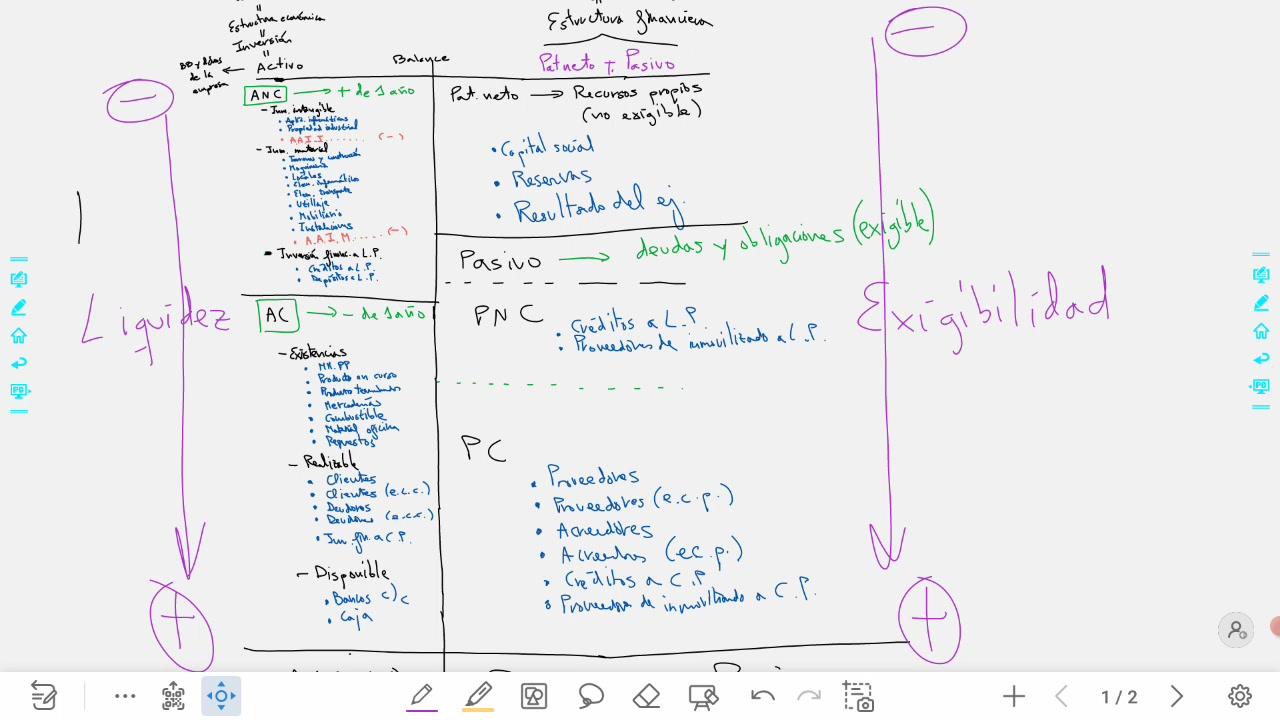 Estructura económica
Inversión
Activo
BB y dchos
de la
empresa
Balance
Estructura financiera
Pat neto + Pasivo
ANC → + de 1 año
- Inm. intangible
• Aplic. informáticas
• Propiedad industrial
• A.A.I.I....... (-)
- Inm. material
• Terrenos y construcción
• Maquinaria
• Locales
• Elem. informático
• Elem. transporte
• Utillaje
• Mobiliario
• Instalaciones
• A.A.I.M...... (-)
- Inversión financ. a L.P.
• Créditos a L.P.
• Depósitos a L.P.
AC → - de 1 año
- Existencias
• MM.PP
• Producto en curso
• Producto terminado
• Mercaderías
• Combustible
• Material oficina
• Repuestos
- Realizable
• Clientes
• Clientes (e.c.c.)
• Deudores
• Deudores (e.c.c.)
• Inv. fin. a C.P.
- Disponible
• Bancos c/c
• Caja
Pat. neto → Recursos propios
(no exigible)
• Capital social
• Reservas
• Resultado del ej.
Pasivo → deudas y obligaciones (exigible)
PNC
• Créditos a L.P
• Proveedores de inmovilizado a L.P.
PC
• Proveedores
• Proveedores (e.c.p.)
• Acreedores
• Acreedores (e.c.p.)
• Créditos a C.P
• Proveedores de inmovilizado a C.P.
Liquidez
Exigibilidad
1 / 2